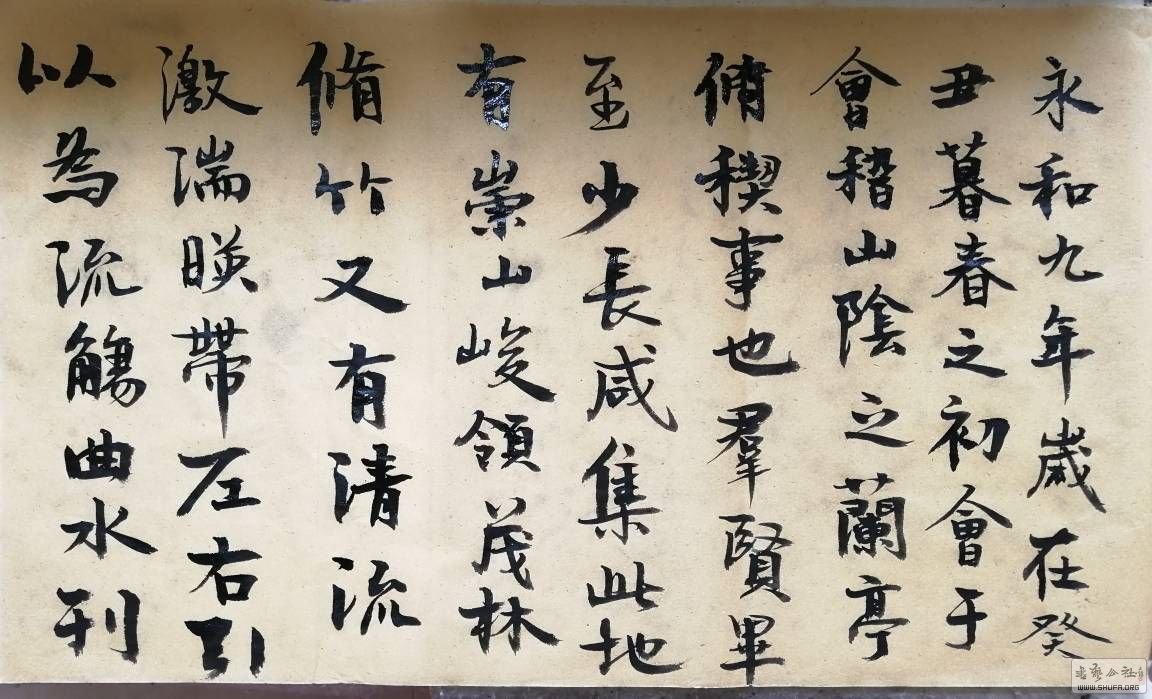 永和九年歲在癸
丑暮春之初會于
會稽山陰之蘭亭
脩稧事也羣賢畢
至少長咸集此地
有崇山峻領茂林
脩竹又有清流
激湍暎帶左右引
以為流觴曲水列
WWW.SHUFA.ORG